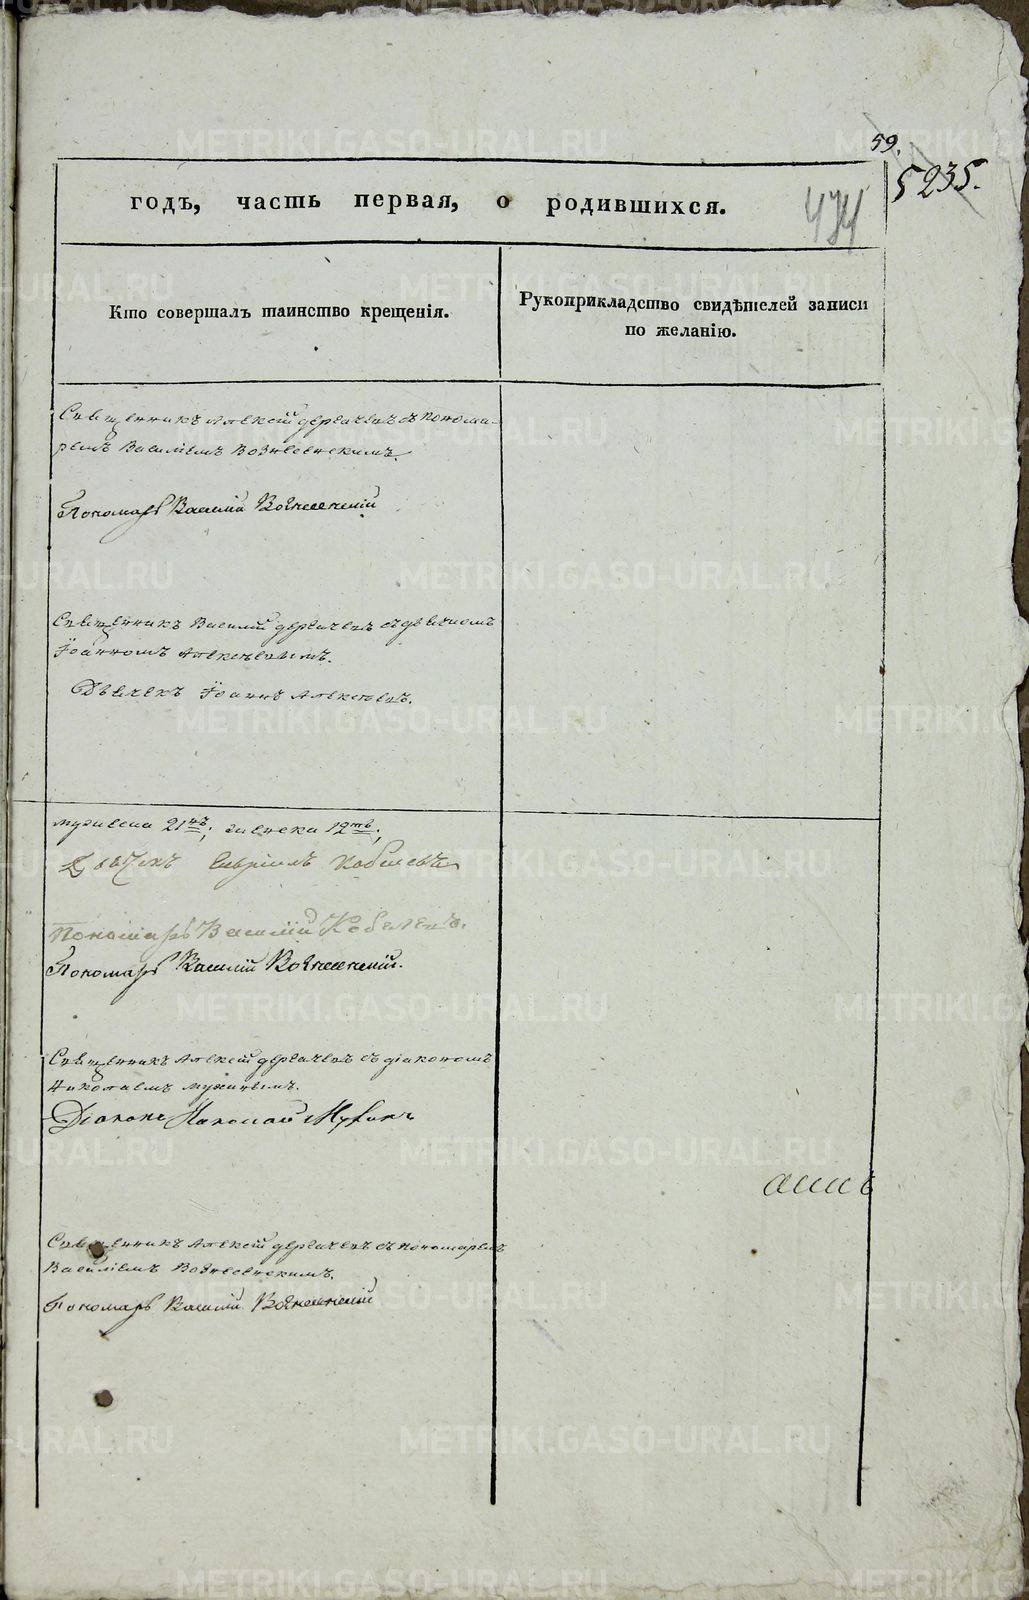 59.
5235.
474
годъ, часть первая, о родившихся.
Кто совершалъ таинство крещенія.
Рукоприкладство свидѣтелей записи
по желанію.
Священникъ Алексѣй Дергачевъ съ понома-
ремъ Василіемъ Вознесенскимъ.
Пономарь Василій Вознесенскій
Священникъ Василій Дергачевъ съ дьячкомъ
Іоанномъ Алексѣевымъ.
Дьячекъ Іоаннъ Алексѣевъ.
мужеска 21нъ, женска 12ть,
Дьячекъ Гавріилъ Кобелевъ
Пономарь Василій Кобелевъ.
Пономарь Василій Вознесенскій.
Священникъ Алексѣй Дергачевъ съ діакономъ
Николаемъ Мухинымъ.
Діаконъ Николай Мухинъ
Священникъ Алексѣй Дергачевъ съ пономаремъ
Василіемъ Вознесенскимъ.
Пономарь Василій Вознесенскій
METRIKI.GASO-URAL.RU